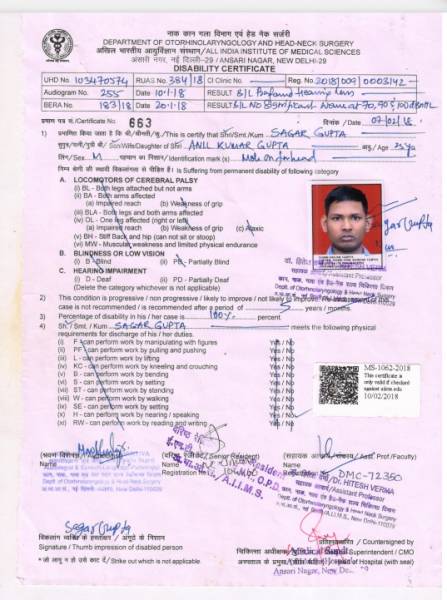 नाक कान गला विभाग एवं हेड नेक सर्जरी
DEPARTMENT OF OTORHINOLARYNGOLOGY AND HEAD-NECK SURGERY
अखिल भारतीय आयुर्विज्ञान संस्थान/ALL INDIA INSTITUTE OF MEDICAL SCIENCES
अंसारी नगर, नई दिल्ली-29 / ANSARI NAGAR, NEW DELHI-29
DISABILITY CERTIFICATE
UHD No. 103470574 RUAS No. 384/18 CI Clinic No. Reg. No. 2018/009/0003142
Audiogram No. 255 Date 10.1.18 RESULT B/L Profound hearing loss
BERA No. 183/18 Date 20.1.18 RESULT B/L No
प्रमाण पत्र सं./Certificate No. 663 दिनांक / Date 07/02/18
1) प्रमाणित किया जाता है कि श्री/श्रीमती/कु./This is certify that Shri/Smt./Kum SAGAR GUPTA
Son/Wife/Daughter of Shri ANIL KUMAR GUPTA आयु / Age 25 yrs
लिंग/Sex M पहचान का निशान / Identification mark (s) Mole on forehead
is Suffering from permanent disability of following category
A. LOCOMOTORS OF CEREBRAL PALSY
(i) BL - Both legs attached but not arms
(ii) BA - Both arms affected
(a) Impaired reach (b) Weakness of grip
(iii) BLA - Both legs and both arms affected
(iv) OL - One leg affected (right or left)
(a) Impaired reach (b) Weakness of grip (c) Ataxic
(v) BH - Stiff Back and hip (can not sit or stoop)
(vi) MW - Muscular weakness and limited physical endurance
B. BLINDNESS OR LOW VISION
(i) B - Blind (ii) PB - Partially Blind
C. HEARING IMPAIRMENT
(i) D - Deaf (ii) PD - Partially Deaf
(Delete the category whichever is not applicable)
2) This condition is progressive / non progressive / likely to improve / not likely to improve
case is not recommended / is recommended after a period of 5 years / months.
3) Percentage of disability in his / her case is 100% percent.
4) Sh./ Smt. / Kum SAGAR GUPTA meets the following physical
requirements for discharge of his / her duties.
(i) F - can perform work by manipulating with figures Yes / No
(ii) PF - can perform work by pulling and pushing Yes / No
(iii) L - can perform work by lifting Yes / No
(iv) KC - can perform work by kneeling and crouching Yes / No
(v) B - can perform work by bending Yes / No
(vi) S - can perform work by setting Yes / No
(vii) ST - can perform work by standing Yes / No
(viii) W - can perform work by walking Yes / No
(ix) SE - can perform work by setting Yes / No
(x) H - can perform work by hearing / speaking Yes / No
(xi) RW - can perform work by reading and writing Yes / No
MS-1062-2018
This certificate is
only valid if checked
against aiims edn
10/02/2018
Senior Resident
Asst. Prof./Faculty)
Name
Name
Name
Registration No.
DMC-72350
Dr. HITESH VERMA
Assistant Professor
Dept. of Otorhinolaryngology & Head Neck Surgery
A.I.I.M.S., New Delhi-110029
E.N.T. O.P.D.
A.I.I.M.S.
Sagar Gupta
विकलांग व्यक्ति के हस्ताक्षर / अंगूठे का निशान
Signature / Thumb impression of disabled person
* जो लागू न हो उसे काट दें / Strike out which is not applicable.
प्रतिहस्ताक्षर / Countersigned by
चिकित्सा अधीक्षक Superintendent / CMO
of Hospital (with seal)
Ansari Nagar, New De